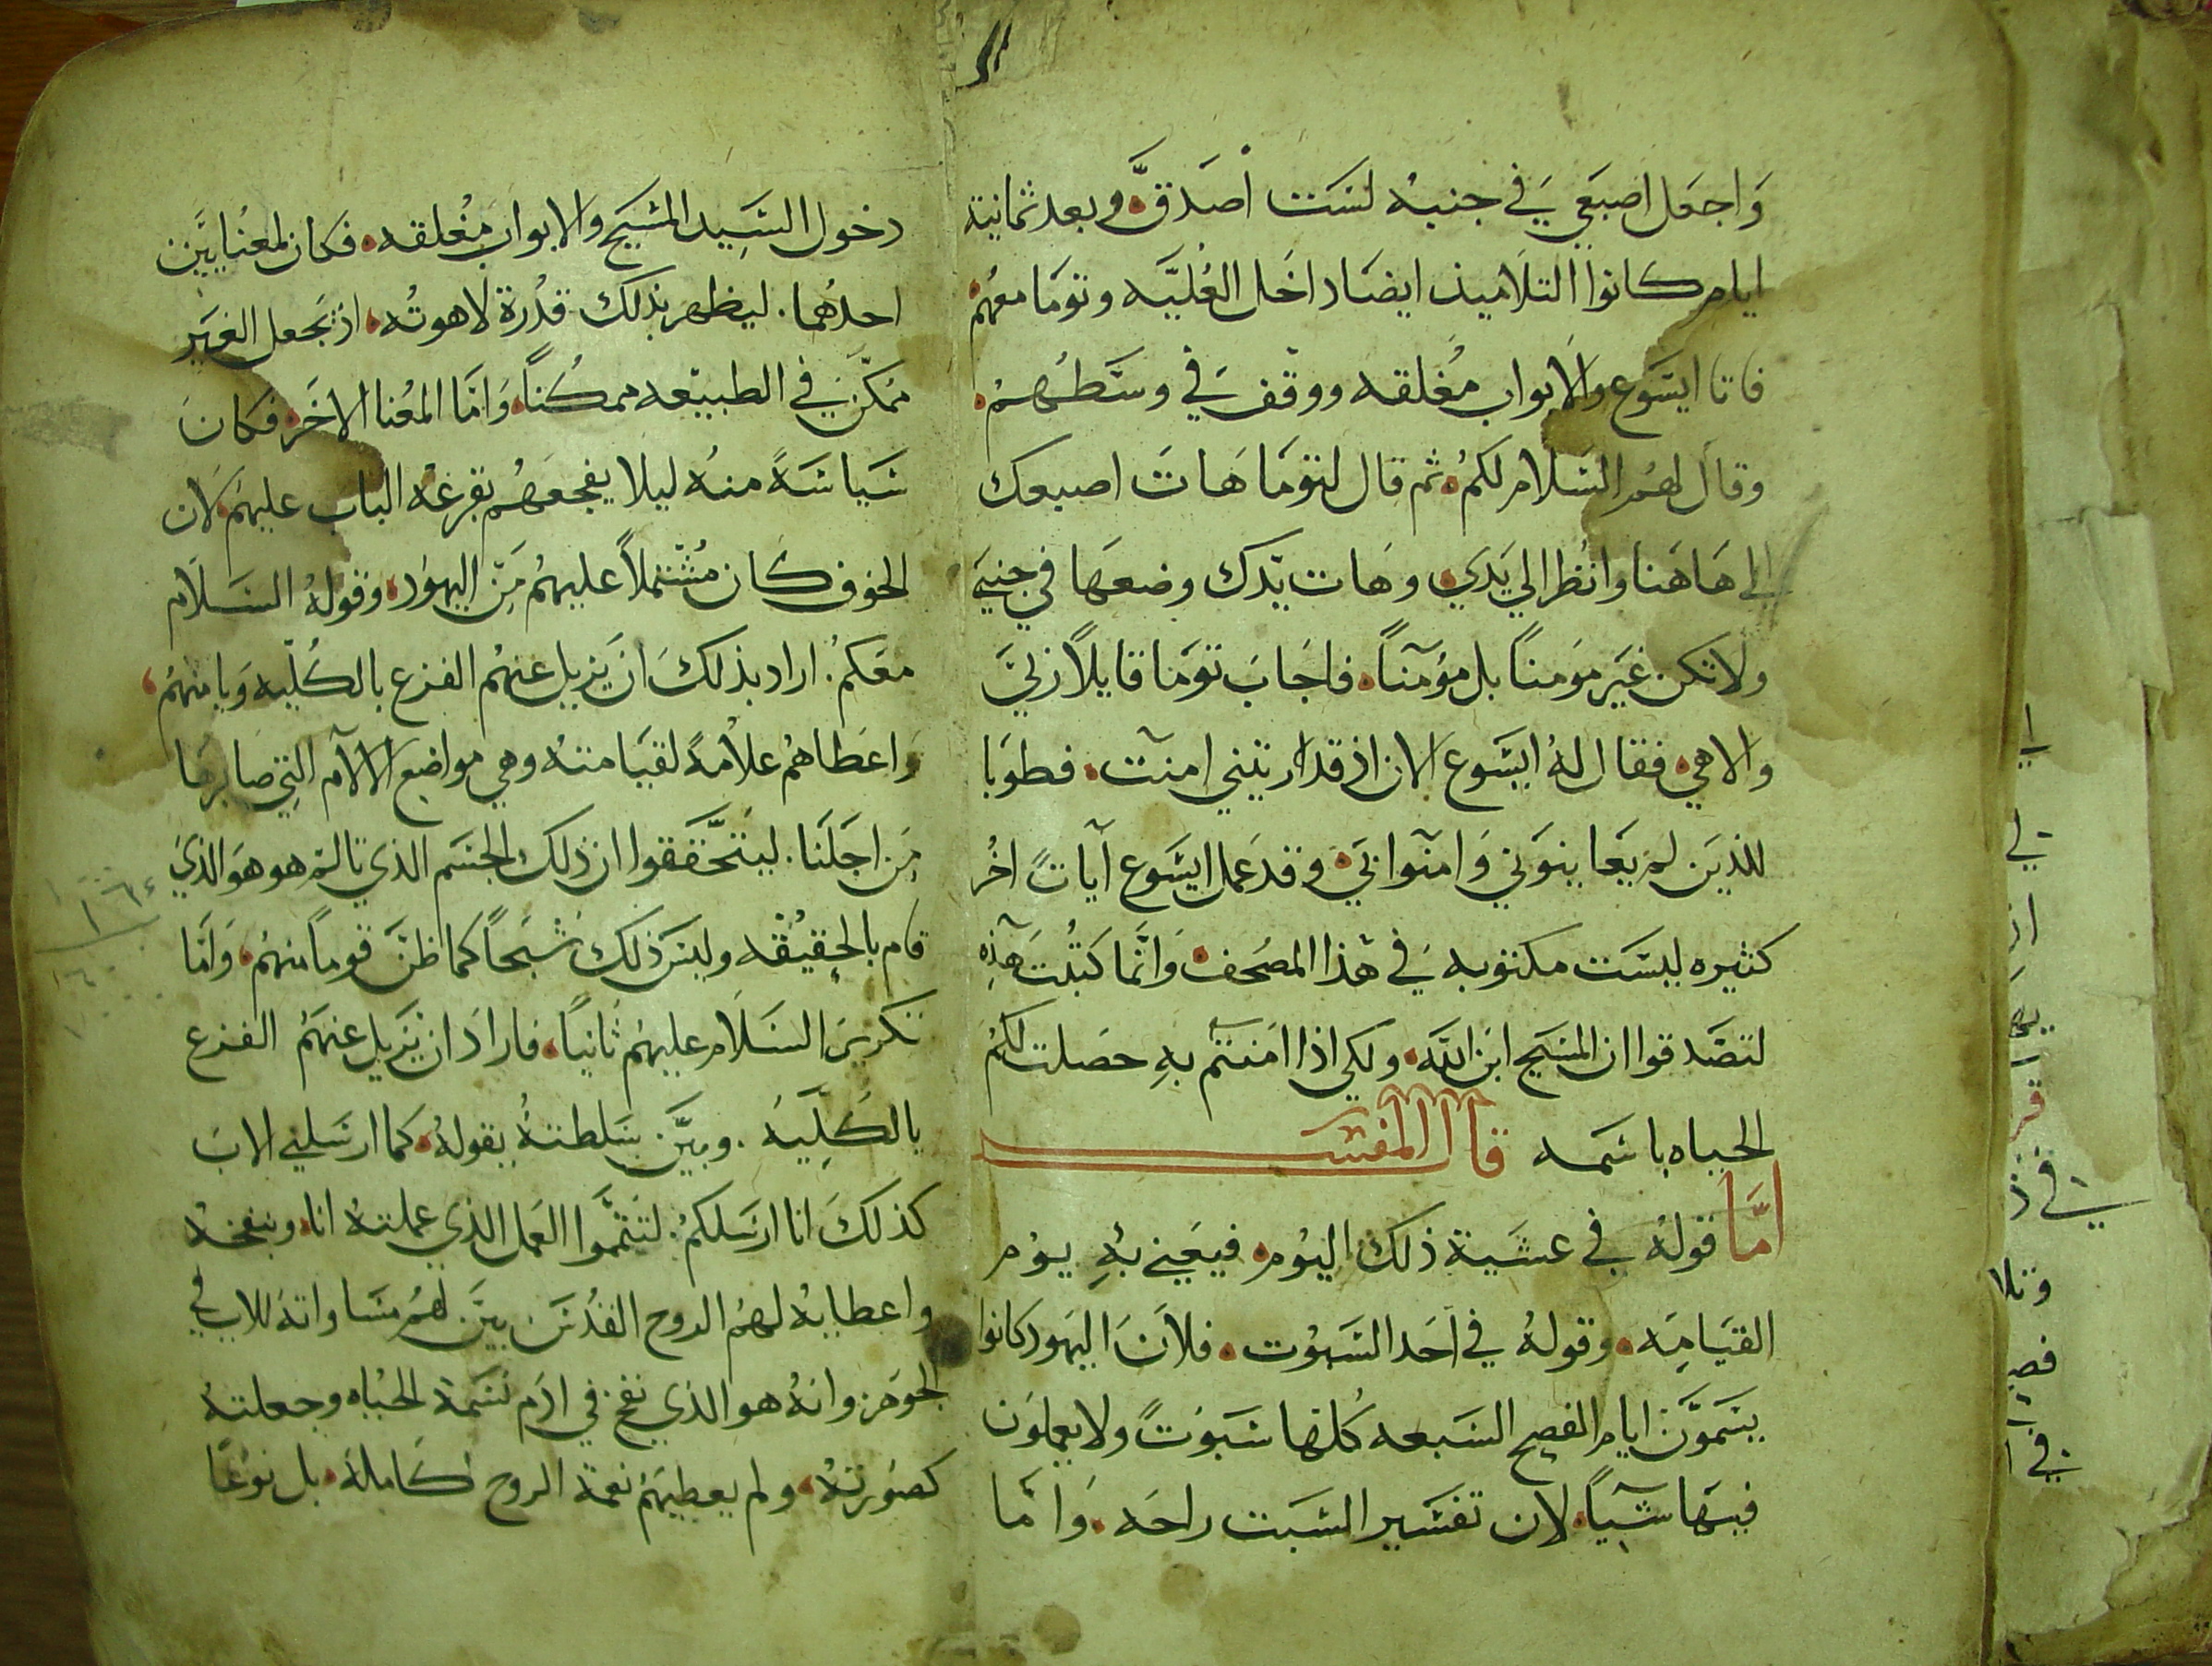 وَاجعَل اصبَعي في جنبه لسَت اصَدق وبعد ثمانية
ايام كانوا التلاميذ ايضَا داخَل العُليَّه وتومَا معهمُ
فاتا ايسَوع والابواب مُغلقه ووقف في وسَطهمُ
وقال لهُم السَلام لكمُ ثم قال لتومَا هَات اصبعك
الي هَاهَنا وانُظر الي يَدي وهَات يَدك وضعهَا في جنبيَ
ولا تكن غيَر مؤمناً بل مؤمناً فاجَابَ تومَا قايلاً ربيَ
والاهي فقال لهُ ايسَوع الان اذ قد رايتني امنت فطوبَا
للذيَن لم يعَاينوني وَامنوا بيَ وقد عمل ايسَوع آياتً اخُر
كثيره ليسَت مكتوبه في هَذا المصَحف وَانَّما كتبُتَ هَذِه
لتصَدقوا ان المسَيح ابن اللَّه ولكي اذا امَنتم بهِ حصَلت لكمُ
الحياه باسَمه قال المفسَر
امَّا قولهُ في عشَية ذلك اليوُم فيعَني بهِ يوُم
القيَامِه وقولهُ في احَد السَبوُت فلانَ اليَهود كانوا
يسَموَّن ايام الفصح السَبعه كُلها سَبوتً ولا يعملون
فيهَا شياً لان تفسَير السَبت راحَه وَامَّا
دخول السَيد المسَيح والابواب مُغلقه فكان لمعُنايَين
احدُهما ليظهر بذلك قدُرة لاهوتُه اذ يجَعل الغيَر
ممكن في الطبيعه ممكنُاً وَامَّا المعُنا الاخَر فكانَ
سَياسَةً منهُ ليلا يفجعهُم بقرعهُ الباب عليهمُ لان
الخوف كان مشُتملاً عليهمُ مِن اليهوُد وقولهُ السَلام
معَكمُ اراد بذلكَ ان يَزيل عنهمُ الفزع بالكُليه وَيامنهمُ
وَاعطاهمُ علامةً لقيَامتهُ وهي مواضع الالام التي صَابرهَا
مِن اجَلنَا ليتحَققوا ان ذلك الجسَم الذي تالم هو هوَ الذيَ
قام بالحقيقه وليسَ ذلك شبَحاً كما ظنَّ قوماً منهمُ وَامَّا
تكريرَ السَلام عليهمُ ثانياً فارادَ ان يَزيل عنهمُ الفزع
بالكُلِّيه وبيَّن سَلطنتهُ بقولهُ كما ارسَلني الابَ
كذلكَ انا ارسَلكمُ لتتمَّموا العمَل الذي عملتهُ انا وبنفخهُ
واعطايهُ لهمُ الروح القدُسَ بيَّن لهمُ مسَاواتهُ للاب في
الجوهَر وانهُ هو الذي نفخ في ادَم نسَمة الحيَاه وجعلتهُ
كصوَرتهُ ولم يعطيهَمُ نعمة الروح كاملة بل نوعاً